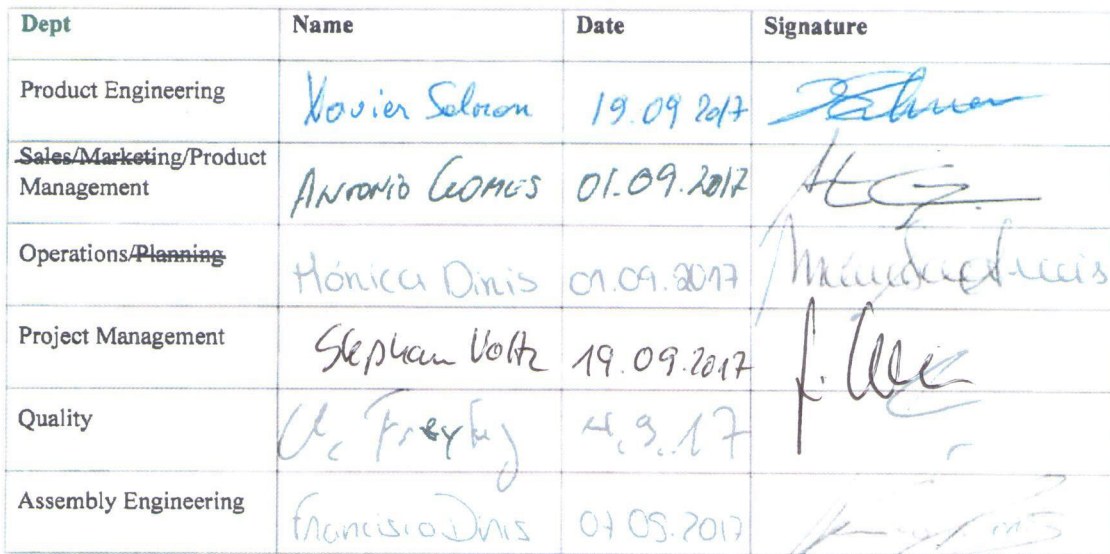 Dept Name Date Signature
Product Engineering Xavier Salmon 19.09 2017
Sales/Marketing/Product
Management ANTONIO GOMES 01.09.2017
Operations/Planning Mónica Dinis 01.09.2017
Project Management Stephan Voltz 19.09.2017
Quality 4.9.17
Assembly Engineering Francisco Dinis 2017